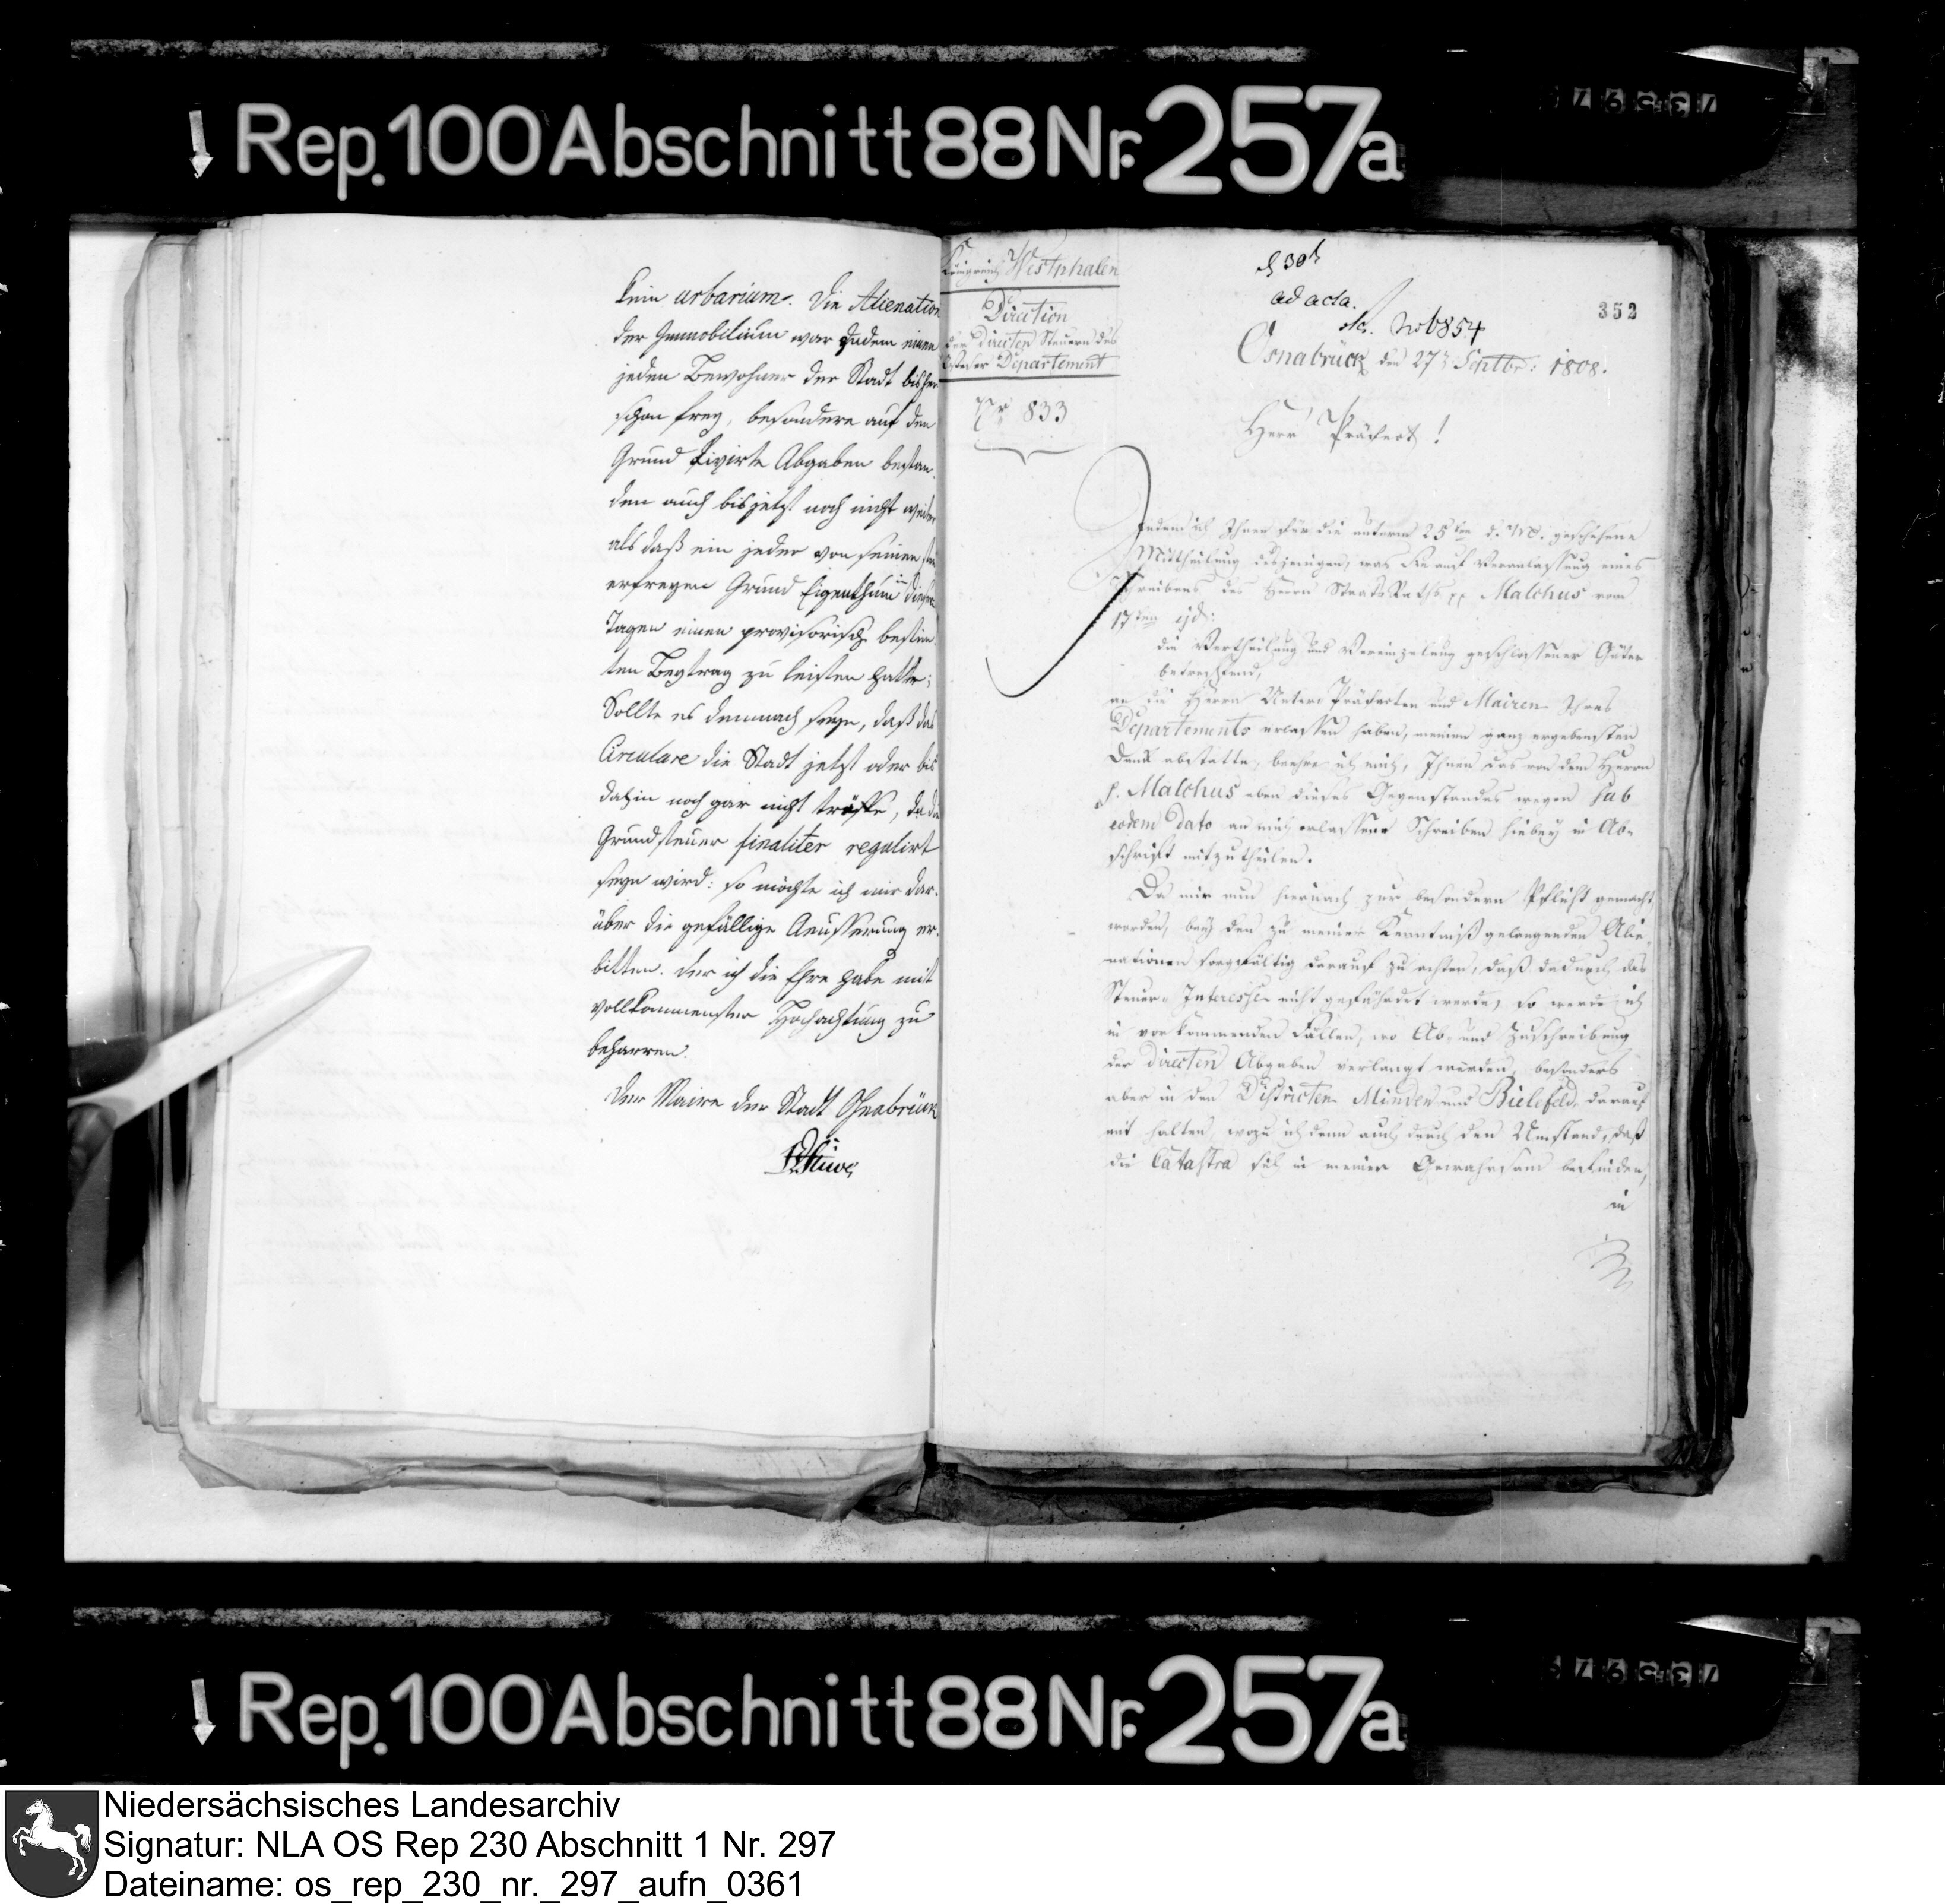 Rep. 100 Abschnitt 88 Nr. 257a
kein urbarium. Die Alienation
der Immobilium war zudem einem
jeden Bewohner der Stadt bisher
schon frey, besondere auf den
Grund fixirte Abgaben bestan-
den auch bis jetzt noch nicht weiter
als daß ein jeder von seinem
erfreyen Grund Eigenthum in diesen
Tagen einen provisorisch bestim-
ten Beytrag zu leisten hatte;
Sollte es demnach seyn, daß das
Circulare die Stadt jetzt oder bis
dahin noch gar nicht träfte, da die
Grundsteuer finaliter regulirt
seyn wird: so möchte ich mir dar-
über die gefällige Aeusserung er-
bitten. Der ich die Ehre habe mit
vollkommenster Hochachtung zu
beharren.
Der Maire der Stadt Osnabrück
Stüve
Königreich Westphalen
Direction
der directen Steuern des
Weser Departement
Nr 833
d 30t
ad acta.
No 6854
352
Osnabrück den 27n Septbr: 1808.
Herr Präfect!
Indem ich Ihnen für die unterm 25ten d. M. geschehene
Mittheilung desjenigen, was Sie auf Veranlassung eines
Schreibens des Herrn Staats Raths pp Malchus vom
17ten ejd:
die Vertheilung und Vereinzelung geschlossener Güter
betreffend,
an die Herrn Unter Präfecten und Mairen Ihres
Departements erlassen haben, meinen ganz ergebensten
Dank abstatte, beehre ich mich, Ihnen das von dem Herrn
p. Malchus eben dieses Gegenstandes wegen sub
eodem dato an mich erlassene Schreiben hiebey in Ab-
schrift mitzutheilen.
Da mir nun hiernach zur besondern Pflicht gemacht
worden, bey den zu meiner Kenntniß gelangenden Alie-
nationen sorgfältig darauf zu achten, daß dadurch das
Steuer-Interesse nicht gefährdet werde, so werde ich
in vorkommenden Fällen, wo Ab- und Zuschreibung
der directen Abgaben verlangt werden, besonders
aber in den Districten Minden und Bielefeld darauf
mit halten, wozu ich denn auch durch den Umstand, daß
die Catastra sich in meiner Gewahrsam befinden,
in
Rep. 100 Abschnitt 88 Nr. 257a
Niedersächsisches Landesarchiv
Signatur: NLA OS Rep 230 Abschnitt 1 Nr. 297
Dateiname: os_rep_230_nr._297_aufn_0361